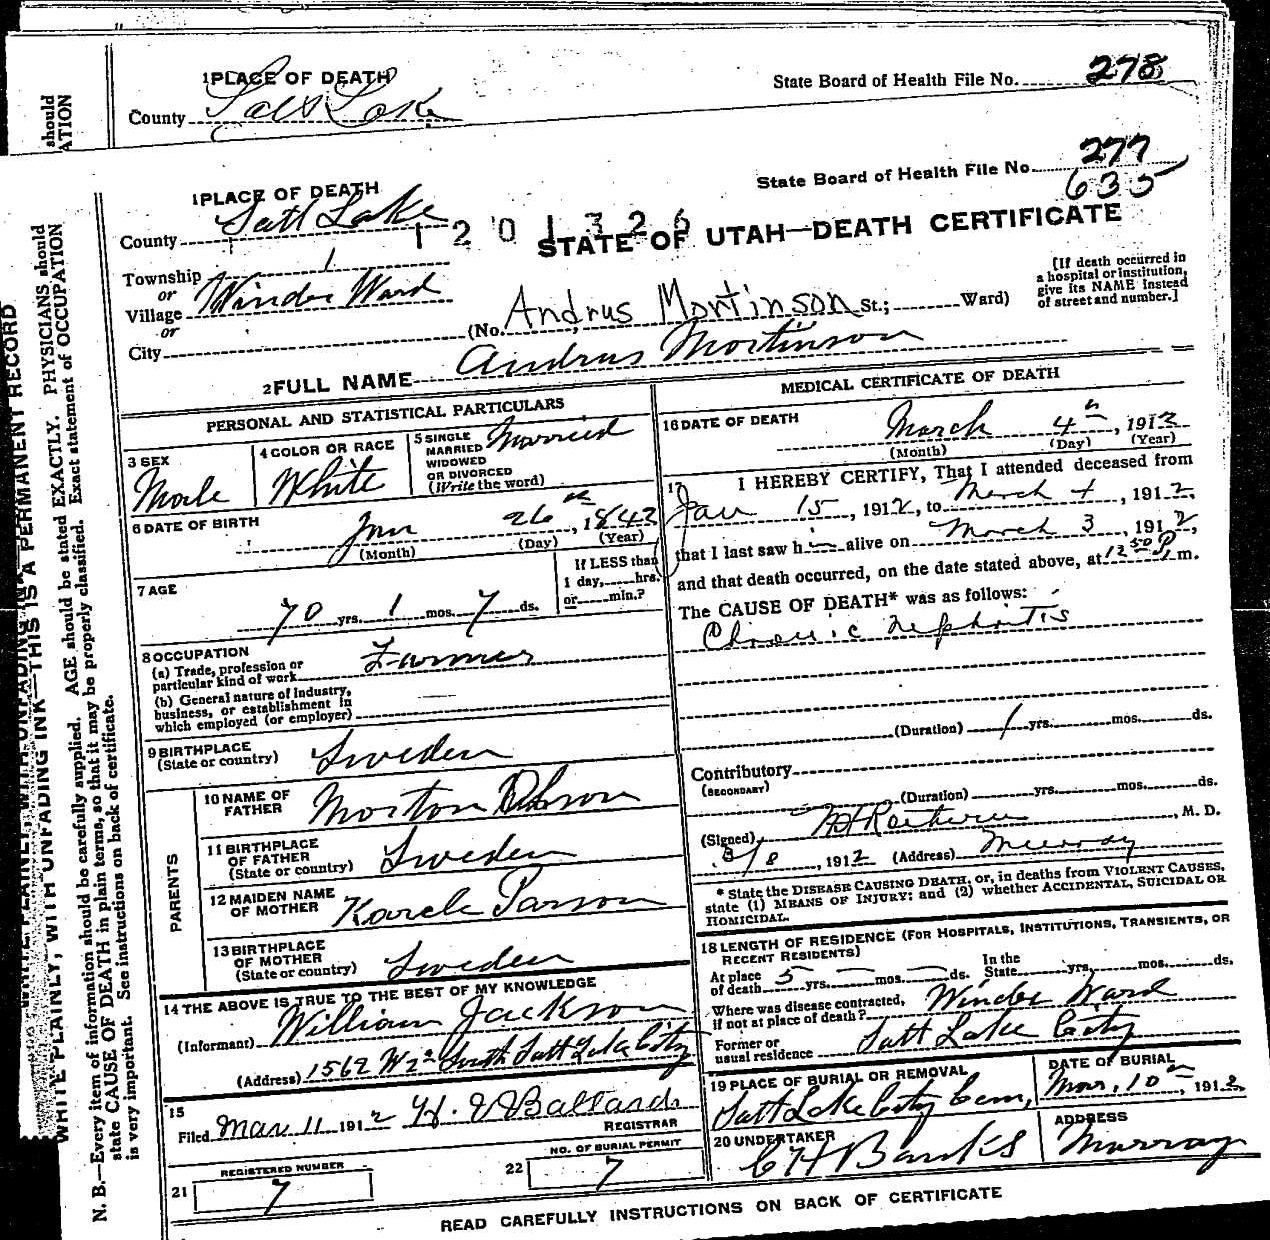 1 PLACE OF DEATH
State Board of Health File No. 278
County Salt Lake
should
ATION
State Board of Health File No. 277
635
1 PLACE OF DEATH
County Salt Lake
1201326
STATE OF UTAH—DEATH CERTIFICATE
Township
or
Village Winder Ward
or
City
(No. Andrus Mortinson St.; Ward)
[If death occurred in
a hospital or institution,
give its NAME instead
of street and number.]
2 FULL NAME Andrus Mortinson
PERSONAL AND STATISTICAL PARTICULARS
3 SEX
Male
4 COLOR OR RACE
White
5 SINGLE
MARRIED
WIDOWED
OR DIVORCED
(Write the word)
Married
6 DATE OF BIRTH
Jan 26th, 1842
(Month) (Day) (Year)
7 AGE
70 yrs. 1 mos. 7 ds.
If LESS than
1 day, hrs.
or min.?
8 OCCUPATION
(a) Trade, profession or
particular kind of work Farmer
(b) General nature of Industry,
business, or establishment in
which employed (or employer)
9 BIRTHPLACE
(State or country) Sweden
PARENTS
10 NAME OF
FATHER Morton Olson
11 BIRTHPLACE
OF FATHER
(State or country) Sweden
12 MAIDEN NAME
OF MOTHER Karele Parson
13 BIRTHPLACE
OF MOTHER
(State or country) Sweden
14 THE ABOVE IS TRUE TO THE BEST OF MY KNOWLEDGE
(Informant) William Jackson
(Address) 1562 W 2nd South Salt Lake City
15
Filed Mar 11 1912 H. E. Ballard
REGISTRAR
REGISTERED NUMBER
21 7
NO. OF BURIAL PERMIT
22 7
MEDICAL CERTIFICATE OF DEATH
16 DATE OF DEATH
March 4th, 1912
(Month) (Day) (Year)
17 I HEREBY CERTIFY, That I attended deceased from
Jan 15, 1912, to March 4, 1912,
that I last saw him alive on March 3, 1912,
and that death occurred, on the date stated above, at 12:50 P.m.
The CAUSE OF DEATH* was as follows:
Chronic nephritis
(Duration) 1 yrs. mos. ds.
Contributory
(SECONDARY)
(Duration) yrs. mos. ds.
(Signed) , M. D.
3/8, 1912 (Address) Murray
* State the DISEASE CAUSING DEATH, or, in deaths from VIOLENT CAUSES,
state (1) MEANS OF INJURY; and (2) whether ACCIDENTAL, SUICIDAL OR
HOMICIDAL.
18 LENGTH OF RESIDENCE (FOR HOSPITALS, INSTITUTIONS, TRANSIENTS, OR
RECENT RESIDENTS)
At place
of death 5 yrs. — mos. — ds. In the
State yrs. mos. ds.
Where was disease contracted,
if not at place of death? Winder Ward
Former or
usual residence Salt Lake City
19 PLACE OF BURIAL OR REMOVAL
Salt Lake City Cem,
DATE OF BURIAL
Mar, 10th, 1912
20 UNDERTAKER
C H Banks
ADDRESS
Murray
READ CAREFULLY INSTRUCTIONS ON BACK OF CERTIFICATE
WRITE PLAINLY, WITH UNFADING INK—THIS IS A PERMANENT RECORD
N. B.—Every item of information should be carefully supplied. AGE should be stated EXACTLY. PHYSICIANS should
state CAUSE OF DEATH in plain terms, so that it may be properly classified. Exact statement of OCCUPATION
is very important. See instructions on back of certificate.